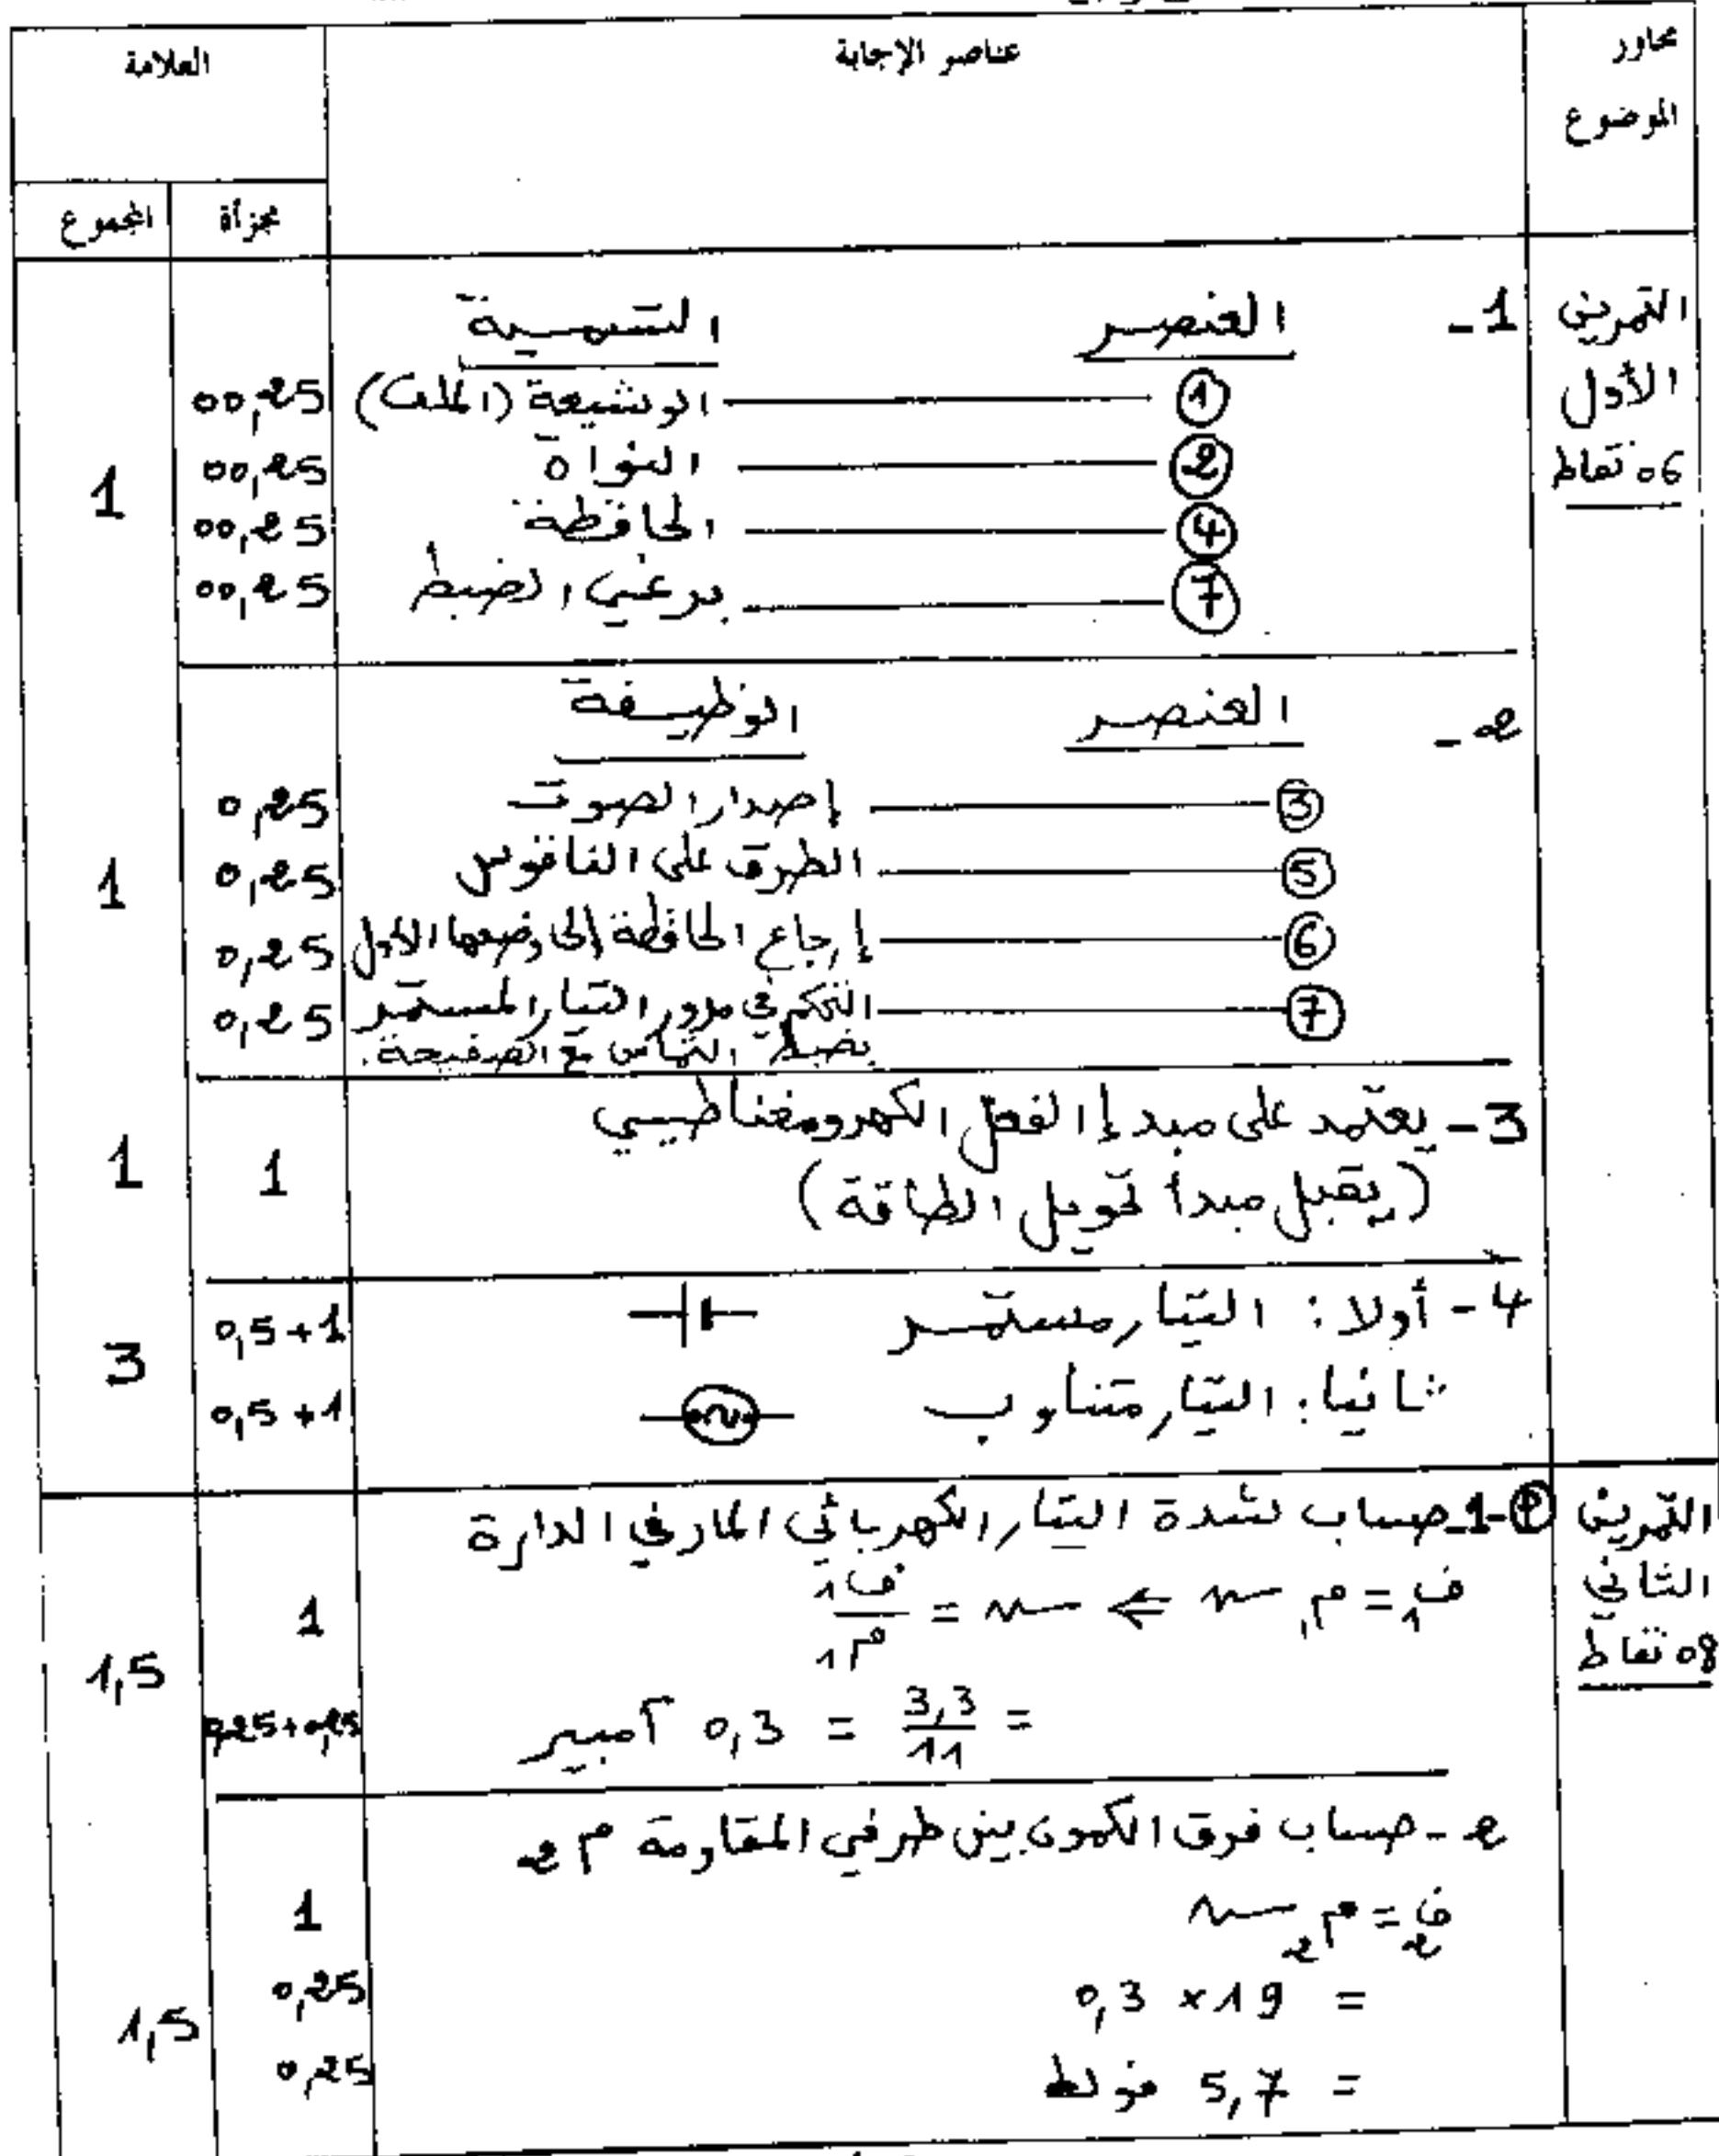 محاور الموضوع	عناصر الإجابة	العلامة
مجزأة	المجموع
التمرين الأول 06 نقاط
1- العنصر	التسمية
① الوشيعة (الملف)	00,25
② النواة	00,25
④ الحافظة	00,25
⑦ برغي الضبط	00,25
1
2- العنصر	الوظيفة
③ إصدار الصوت	0,25
⑤ الطرق على الناقوس	0,25
⑥ إرجاع الحافظة إلى وضعها الأول	0,25
⑦ التحكم في مرور التيار المستمر	0,25
بضبط التماس مع الصفيحة.
1
3- يعتمد على مبدإ الفعل الكهرومغناطيسي
(يقبل مبدأ تحويل الطاقة)	1	1
4- أولا: التيار مستمر	0,5+1
ثانيا: التيار متناوب	0,5+1
3
التمرين الثاني 08 نقاط
1- حساب شدة التيار الكهربائي المار في الدارة
ف1 = م1 س ⇐ س = ف1/م1	1
= 3,3/11 = 0,3 آمبير	0,25+0,25
1,5
2- حساب فرق الكمون بين طرفي المقاومة م2
ف2 = م2 س	1
= 19 × 0,3	0,25
= 5,7 فولط	0,25
1,5